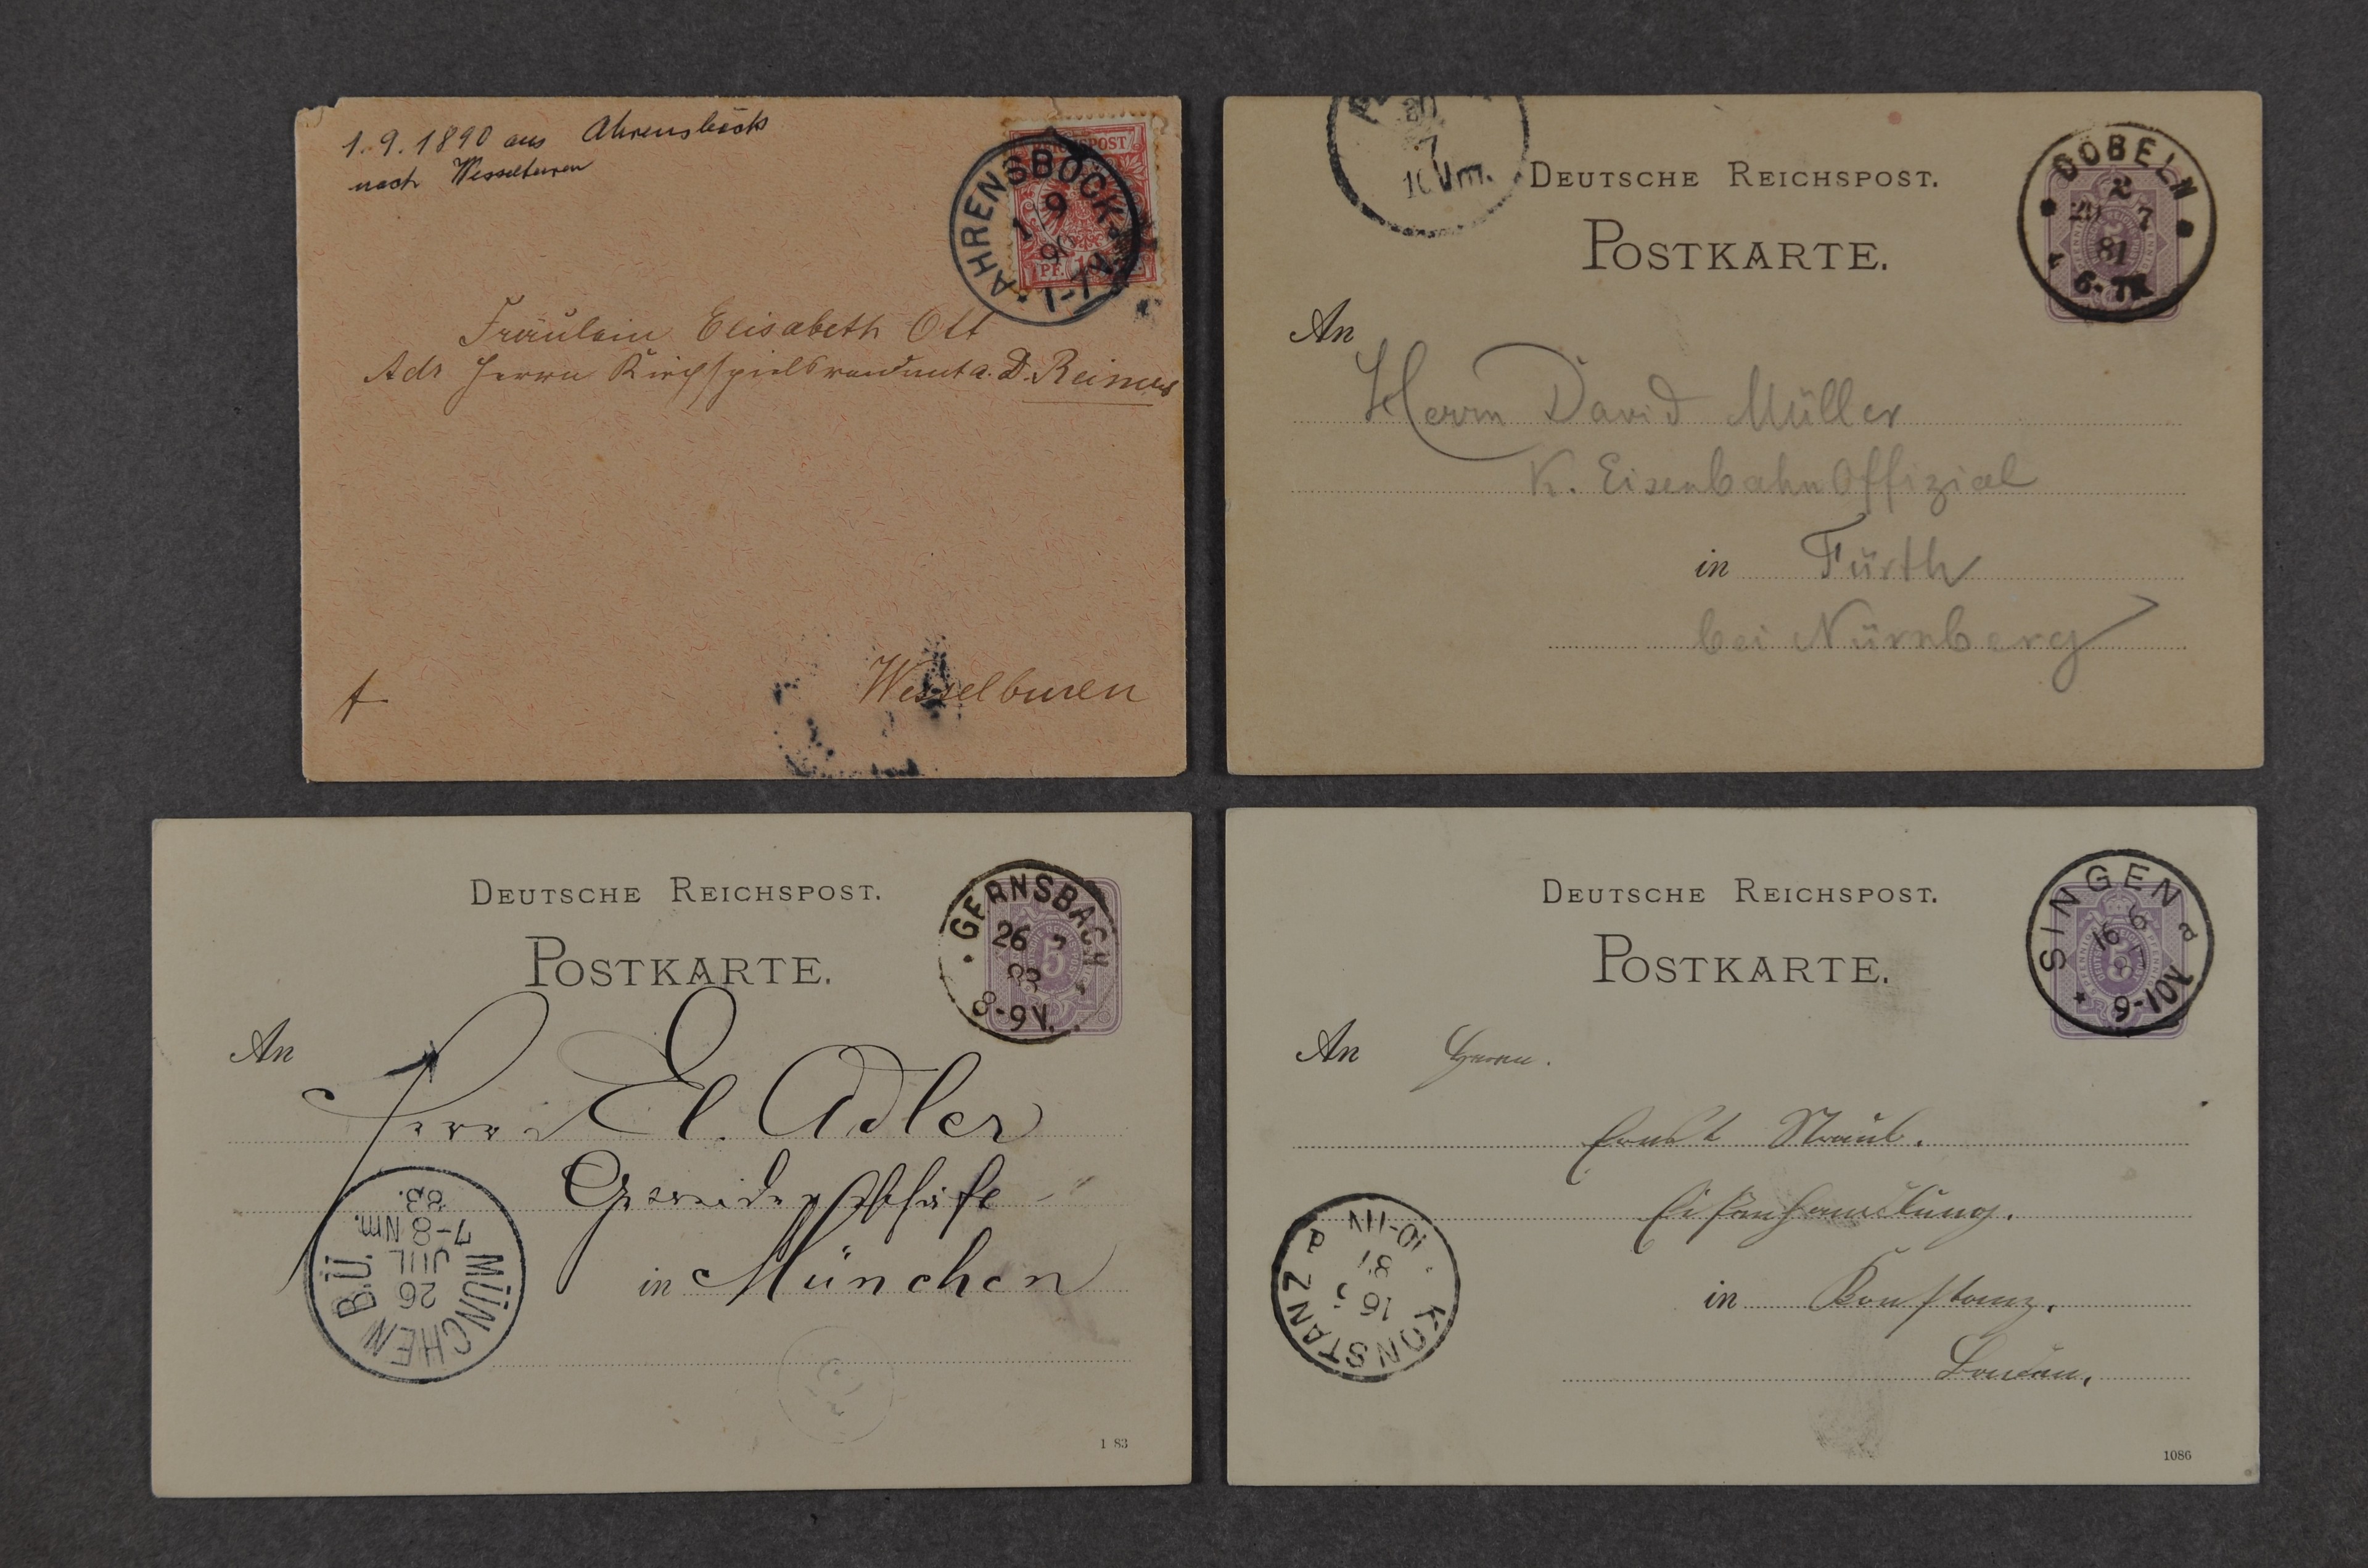 1.9.1890 aus Ahrensböck
nach Wesselburen
REICHSPOST
AHRENSBÖCK
1 9
90
1-7 V.
PF. 10
Fräulein Elisabeth Ott
Adr Herrn Kirchspiels a. D. Reimers
Wesselburen
20
7
10 Vm.
DEUTSCHE REICHSPOST.
POSTKARTE.
DÖBELN
2
20 7
81
6-7N
An
Herrn David Müller
K. Eisenbahn Offizial
in Fürth
bei Nürnberg
DEUTSCHE REICHSPOST.
POSTKARTE.
GERNSBACH
26 7
83
8-9V.
5
An
Herrn El. Adler
Getreidegeschäft
in München
MÜNCHEN B.Ü.
26
JUL
7-8 Nm.
83.
1 83
DEUTSCHE REICHSPOST.
POSTKARTE.
SINGEN a
16 6
9-10V
5
An Herrn.
Ernst Straub.
Eisenhandlung.
in Konstanz.
KONSTANZ
16
87
10-11V
1086